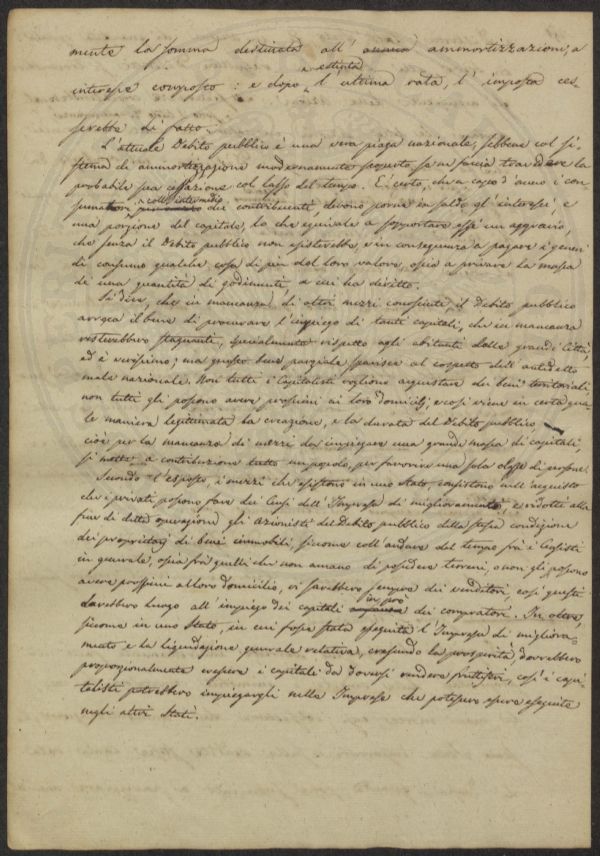 mente la somma destinata all' annua ammortizzazione, a
estinta
interesse composto: e dopo l'ultima rata, l'imposta ces-
serebbe di fatto.
L'attuale Debito pubblico è una vera piaga nazionale, sebbene col si-
stema di ammortizzazione modernamente scoperto, se ne faccia travedere la
probabile sua cessazione col lasso del tempo. È certo, che a capo d'anno i con-
sumatori, coll'intermedio dei contribuenti, devono porne in saldo gl'interessi, e
una porzione del capitale, lo che equivale a sopportare essi un aggravio,
che senza il Debito pubblico non esisterebbe, e in conseguenza a pagare i generi
di consumo qualche cosa di più del loro valore, ossia a privare la massa
di una quantità di godimenti, a cui ha diritto.
Si dice, che in mancanza di altri mezzi consimili, il Debito pubblico
arreca il bene di procurare l'impiego di tanti capitali, che in mancanza
resterebbero stagnanti, specialmente rispetto agli abitanti delle grandi Città,
ed è verissimo; ma questo bene parziale sparisce al cospetto dell'antidetto
male nazionale. Non tutti i Capitalisti vogliono acquistare dei beni territoriali,
non tutti gli possono avere prossimi ai loro domicilj; e così viene in certa qua-
le maniera legittimata la creazione, e la durata del Debito pubblico
cioè per la mancanza di mezzi da impiegare una grande massa di capitali,
si mette a contribuzione tutto un popolo, per favorire una sola classe di persone.
Secondo l'esposto, i mezzi che esistono in uno Stato, consistono nell'acquisto
che i privati possono fare dei Censi dell'Impresa di miglioramento, e ridotti alla
fine di detta operazione gli azionisti del Debito pubblico della stessa condizione
dei proprietarj di beni immobili, siccome coll'andare del tempo frà i Censisti
in generale, ossia frà quelli che non amano di possedere terreni, o non gli possono
avere prossimi al loro domicilio, vi sarebbero sempre dei venditori, così questi
in prò
darebbero luogo all'impiego dei capitali dei compratori. In oltre,
siccome in uno Stato, in cui fosse stata eseguita l'Impresa di migliora-
mento e la liquidazione generale relativa, crescendo la prosperità, dovrebbero
proporzionalmente crescere i capitali da doversi rendere fruttiferi, così i capi-
talisti potrebbero impiegargli nelle Imprese che potessero essere eseguite
negli altri Stati.